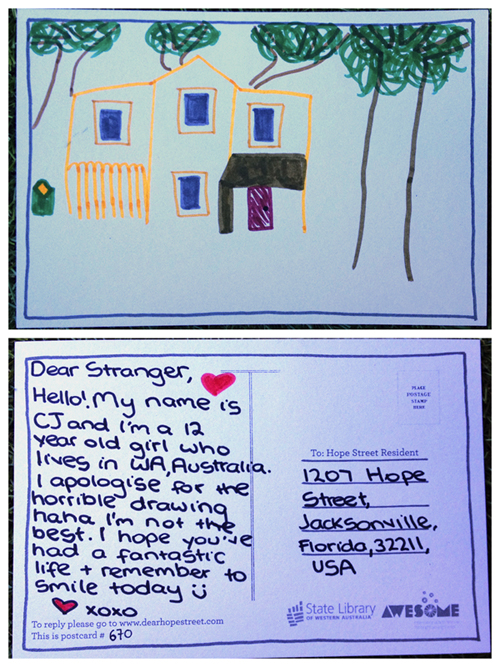 Dear Stranger,
Hello! My name is
CJ and I'm a 12
year old girl who
lives in WA, Australia.
I apologise for the
horrible drawing
haha I'm not the
best. I hope you've
had a fantastic
life + remember to
smile today ü
xoxo
To reply please go to www.dearhopestreet.com
This is postcard # 670
PLACE
POSTAGE
STAMP
HERE
To: Hope Street Resident
1207 Hope
Street,
Jacksonville,
Florida, 32211,
USA
State Library
OF WESTERN AUSTRALIA
AWESOME